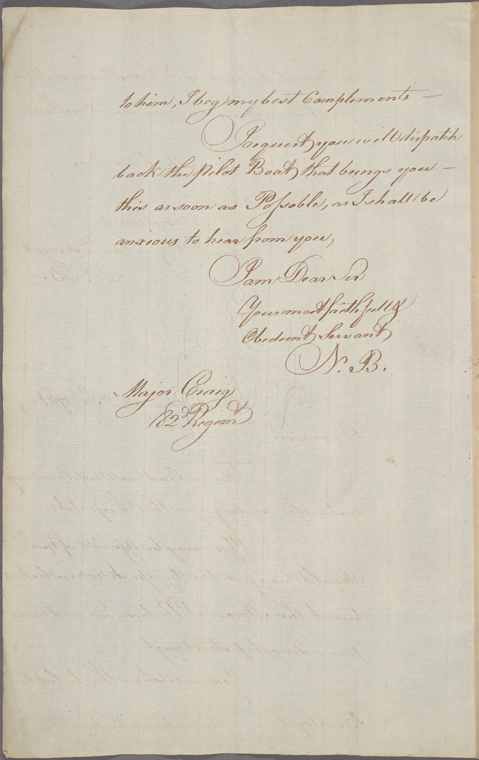 to him, I beg my best Compliments —
I request you will dispatch
back the Pilot Boat, that brings you —
this as soon as Possoble, as I shall be
anxious to hear from you,
I am Dear Sir
Your most faithfull &
Obedient Servant,
N. B.
Major Craig
82d Regimt